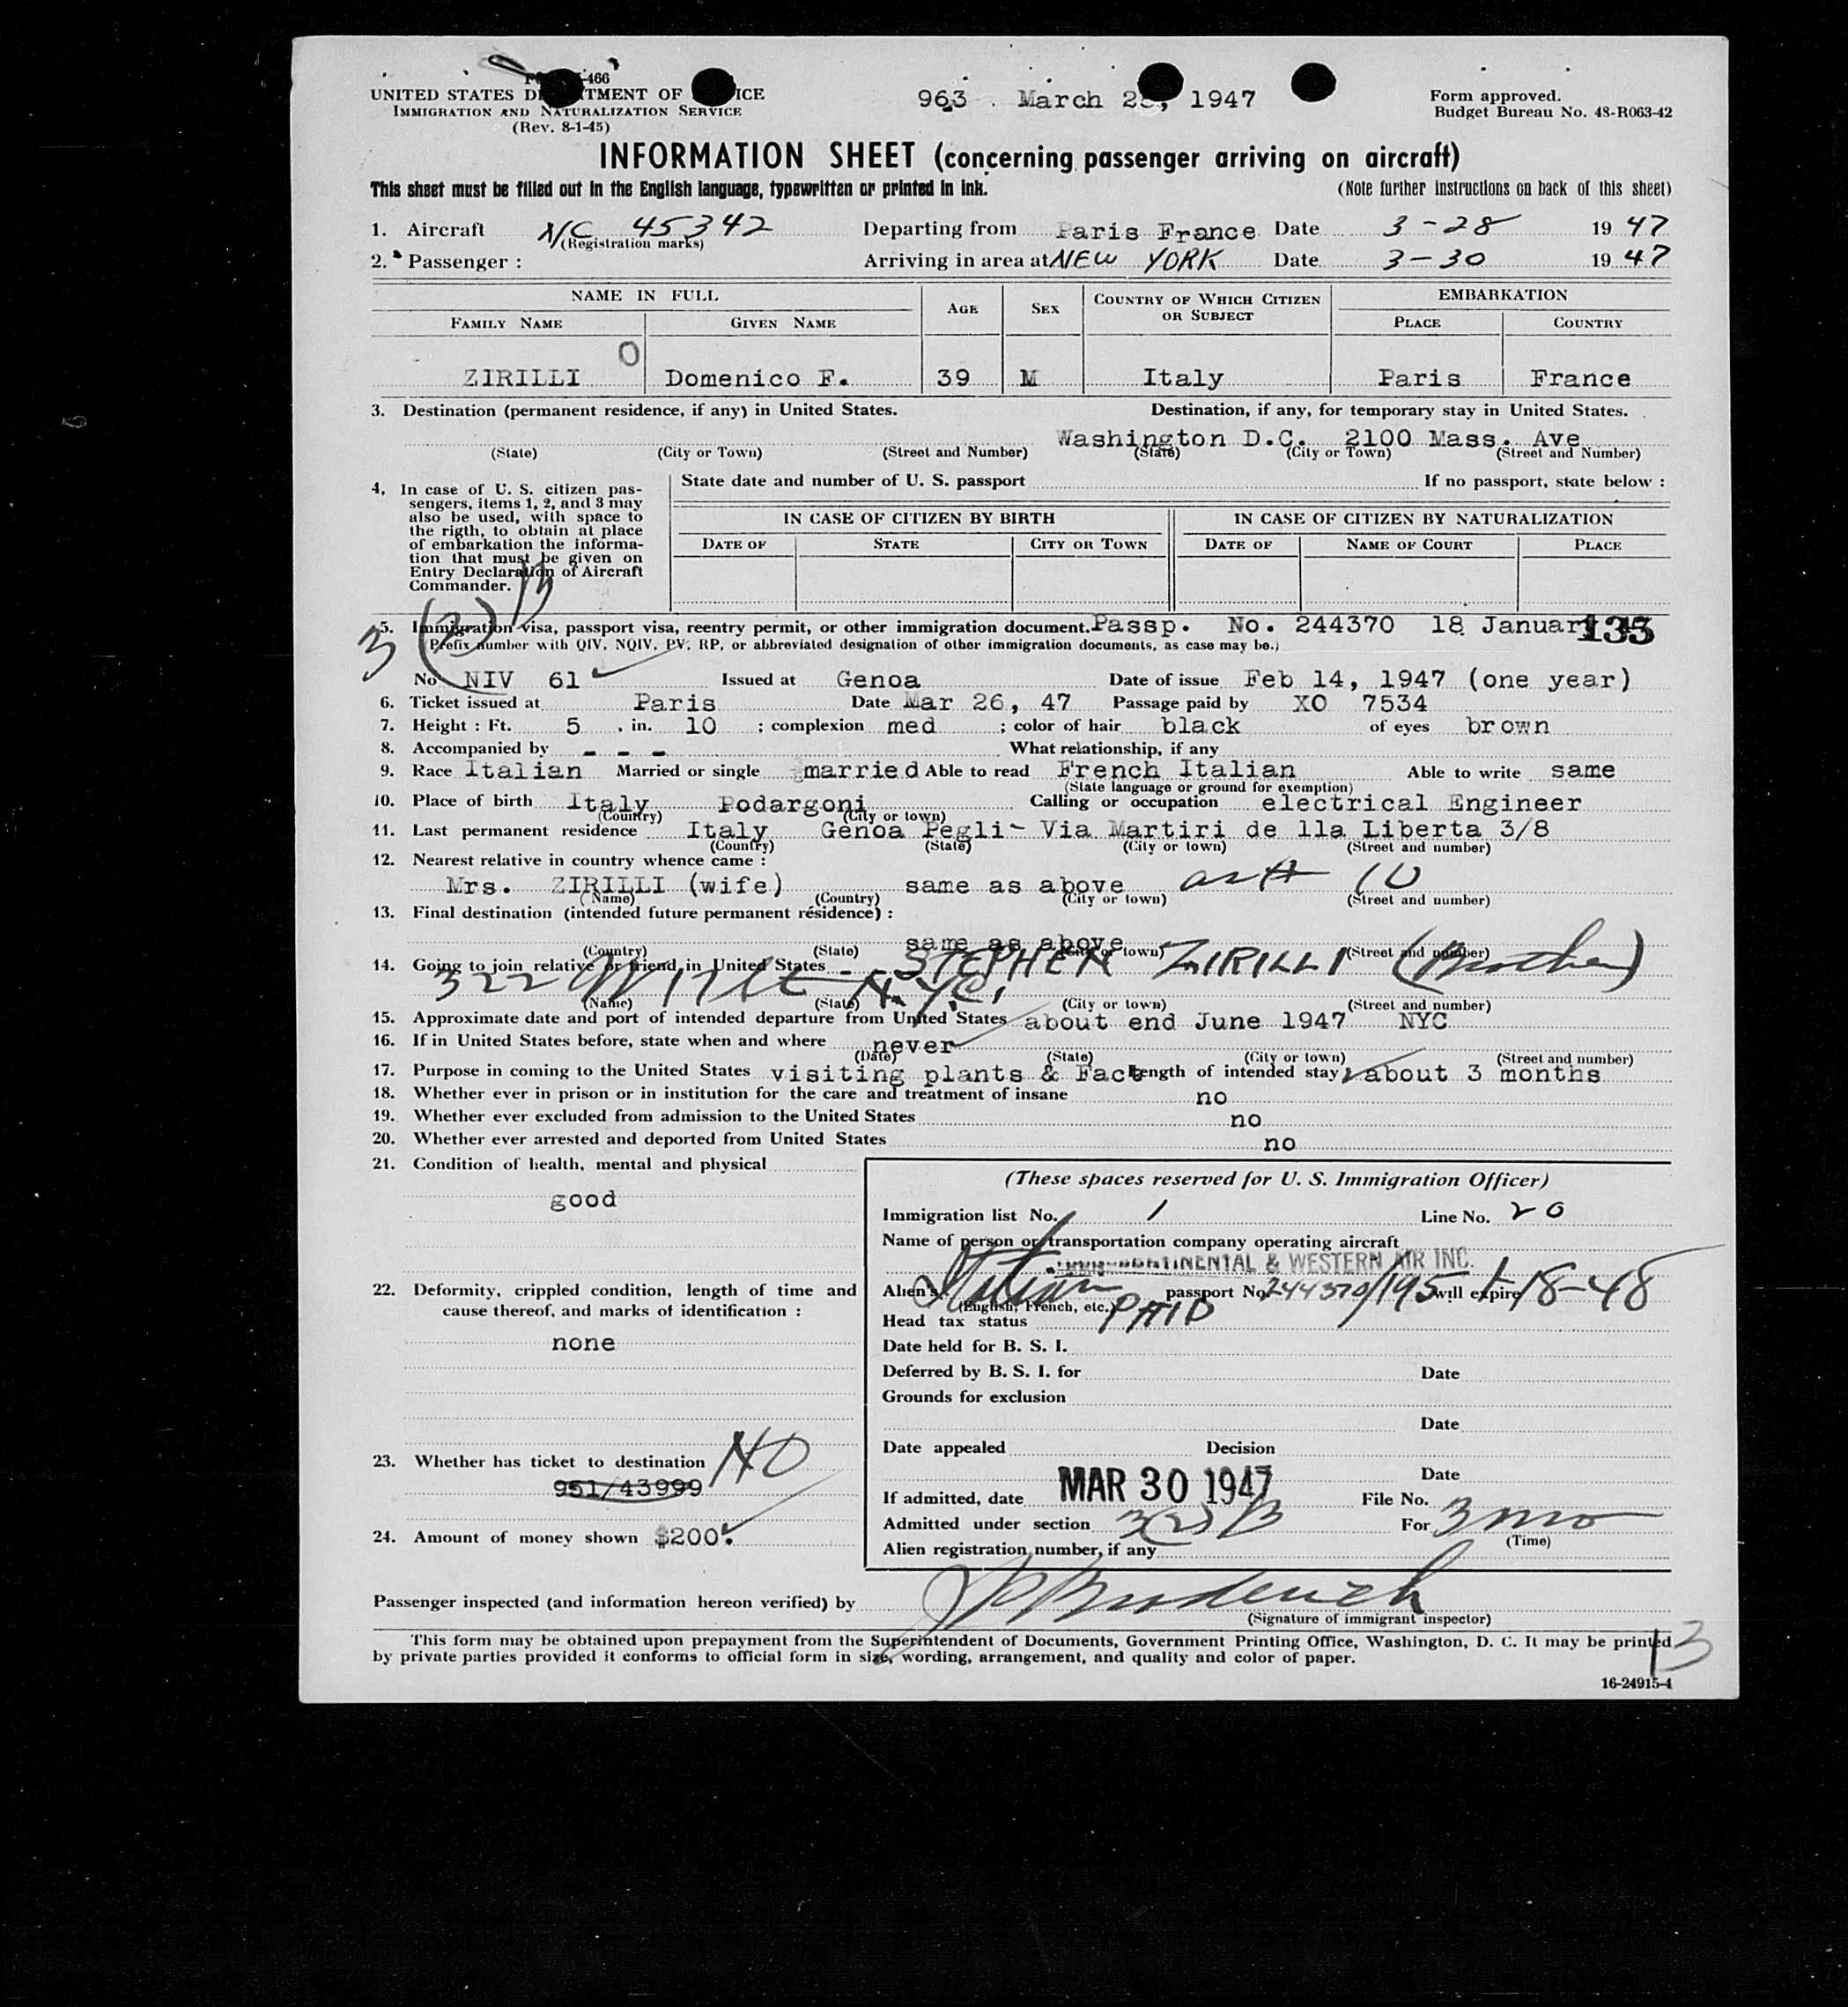 UNITED STATES DEPARTMENT OF JUSTICE
963 March 28, 1947
Form approved.
IMMIGRATION AND NATURALIZATION SERVICE
Budget Bureau No. 43-R063-42
(Rev. 8-1-45)
INFORMATION SHEET (concerning passenger arriving on aircraft)
This sheet must be filled out in the English language, typewritten or printed in ink. (Note further instructions on back of this sheet)
1. Aircraft NC 45342 Departing from Paris France Date 3-28 19 47
(Registration marks)
2. Passenger : Arriving in area at NEW YORK Date 3-30 19 47
NAME IN FULL AGE SEX COUNTRY OF WHICH CITIZEN OR SUBJECT EMBARKATION
FAMILY NAME GIVEN NAME PLACE COUNTRY
O
ZIRILLI Domenico F. 39 M Italy Paris France
3. Destination (permanent residence, if any) in United States. Destination, if any, for temporary stay in United States.
Washington D.C. 2100 Mass. Ave
(State) (City or Town) (Street and Number) (State) (City or Town) (Street and Number)
4. In case of U. S. citizen pas-
sengers, items 1, 2, and 3 may
also be used, with space to
the rigth, to obtain at place
of embarkation the informa-
tion that must be given on
Entry Declaration of Aircraft
Commander.
State date and number of U. S. passport If no passport, state below :
IN CASE OF CITIZEN BY BIRTH IN CASE OF CITIZEN BY NATURALIZATION
DATE OF STATE CITY OR TOWN DATE OF NAME OF COURT PLACE
3 (2) B
5. Immigration visa, passport visa, reentry permit, or other immigration document. Passp. No. 244370 18 Januar 135
(Prefix number with QIV, NQIV, PV, RP, or abbreviated designation of other immigration documents, as case may be.)
No NIV 61 Issued at Genoa Date of issue Feb 14, 1947 (one year)
6. Ticket issued at Paris Date Mar 26, 47 Passage paid by XO 7534
7. Height : Ft. 5 , in. 10 ; complexion med ; color of hair black of eyes brown
8. Accompanied by - - - What relationship, if any
9. Race Italian Married or single married Able to read French Italian Able to write same
(State language or ground for exemption)
10. Place of birth Italy Podargoni Calling or occupation electrical Engineer
(Country) (City or town)
11. Last permanent residence Italy Genoa Pegli- Via Martiri de lla Liberta 3/8
(Country) (State) (City or town) (Street and number)
12. Nearest relative in country whence came :
Mrs. ZIRILLI (wife) same as above
(Name) (Country) (City or town) (Street and number)
13. Final destination (intended future permanent résidence) :
same as above
(Country) (State) (City or town) (Street and number)
14. Going to join relative or friend in United States - STEPHEN ZIRILLI (Brother)
322 W 17 St N.Y.C.
(Name) (State) (City or town) (Street and number)
15. Approximate date and port of intended departure from United States about end June 1947 NYC
16. If in United States before, state when and where never
(Date) (State) (City or town) (Street and number)
17. Purpose in coming to the United States visiting plants & Fact Length of intended stay about 3 months
18. Whether ever in prison or in institution for the care and treatment of insane no
19. Whether ever excluded from admission to the United States no
20. Whether ever arrested and deported from United States no
21. Condition of health, mental and physical
good
22. Deformity, crippled condition, length of time and
cause thereof, and marks of identification :
none
23. Whether has ticket to destination NO
951/43999
24. Amount of money shown $200.
(These spaces reserved for U. S. Immigration Officer)
Immigration list No. 1 Line No. 20
Name of person or transportation company operating aircraft
CONTINENTAL & WESTERN AIR INC.
Alien's Italian passport No. 244370/195 will expire 1-18-48
(English, French, etc.)
Head tax status PAID
Date held for B. S. I.
Deferred by B. S. I. for Date
Grounds for exclusion
Date
Date appealed Decision
Date
If admitted, date MAR 30 1947 File No.
Admitted under section 3(2) B For 3 mo
(Time)
Alien registration number, if any
Passenger inspected (and information hereon verified) by
(Signature of immigrant inspector)
This form may be obtained upon prepayment from the Superintendent of Documents, Government Printing Office, Washington, D. C. It may be printed
by private parties provided it conforms to official form in size, wording, arrangement, and quality and color of paper.
13
16-24915-1